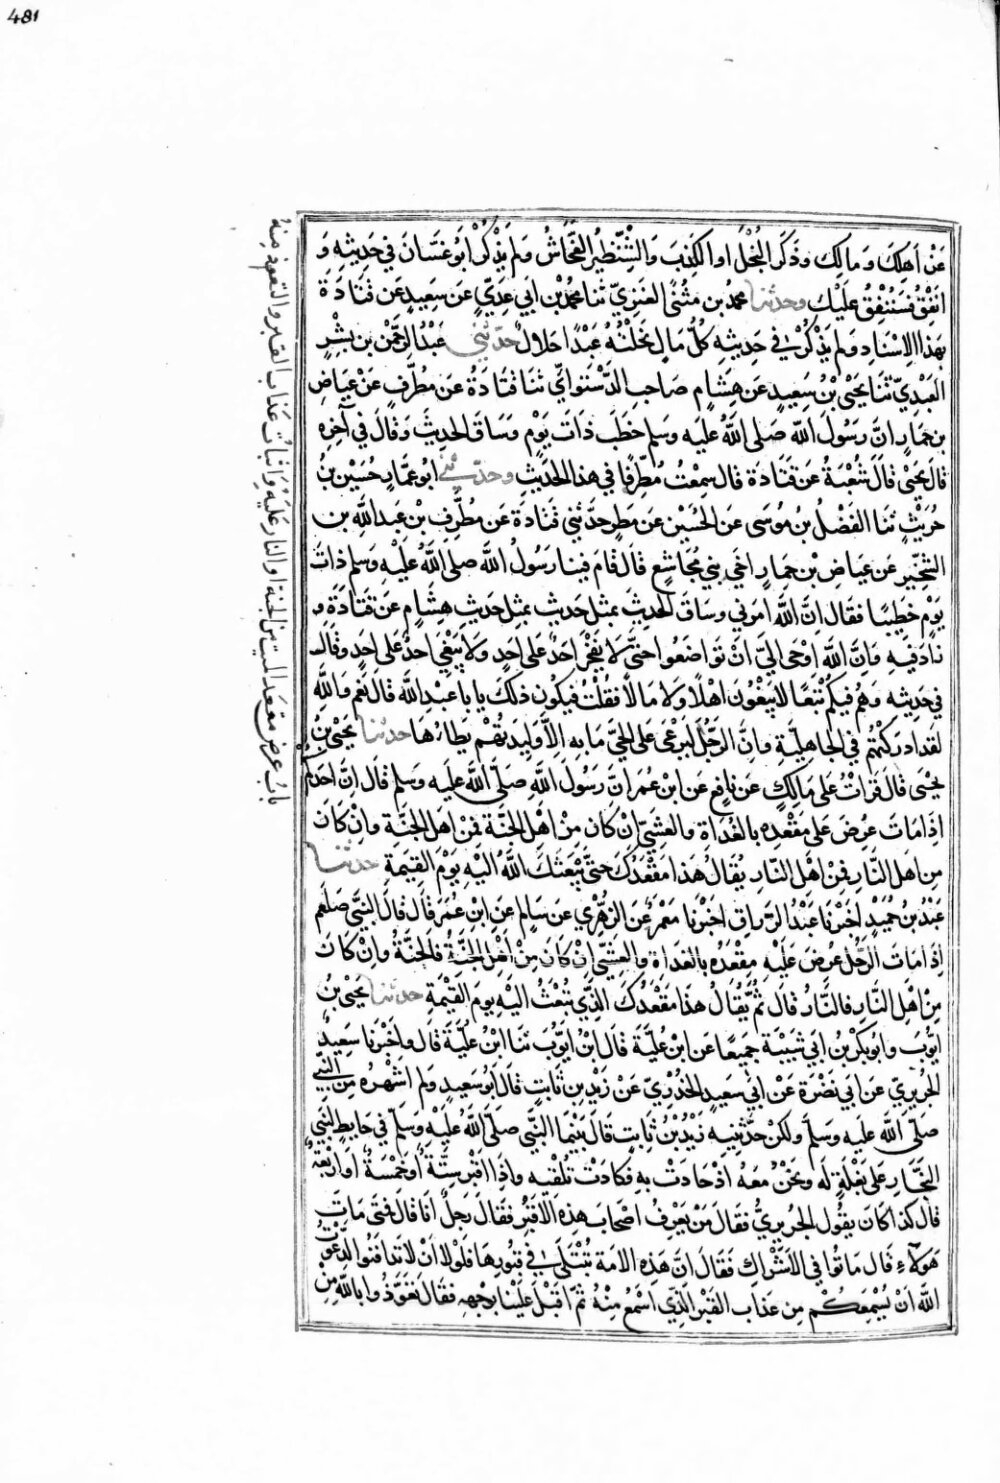 481
عَنْ اَهِلكَ وَمالِك وَذَكَرَ البُخْلَ اوالكَذِبَ وَالشِّنْظِيْرُ الفَحَّاشُ وَلم يَذْكُرْ ابُوغَسَّانَ في حَدِيثِهِ وَ
انفِقْ فَسَنُنْفِقُ عَلَيْك وحدثنا محمدُ بن مثُنَّى العَنزِيّ ثنا محمدُ بْن ابي عَدِيٍّ عَن سَعِيدٍ عَن قَتَادَةَ
بهَذا الاِسْنادِ وَلم يَذْكُرْ في حَدِيثِهِ كلُّ مَالٍ نحَلْتُهُ عَبْدًا حَلال حَدّثني عَبْدُ الرَّحْمٰن بن بِشْرٍ
العَبْدِيّ ثنا يَحْيَى بْنُ سَعِيدٍ عَن هِشَامٍ صَاحِبِ الدَّسْتوائيّ ثنا قتَادَةُ عَن مُطَرِّفٍ عَنْ عِيَاضِ
بن حِمَارٍ انَّ رَسُولَ اللّه صَلى اللّهُ عَليَه وسَلم خطَبَ ذاتَ يَوْمٍ وَسَاقَ الحديثَ وَقالَ في آخِرِه
قالَ يحيَى قالَ شُعْبَةُ عَن قتَادة قال سَمِعْتُ مطَرِّفا في هذا الحَديثِ وحدّثني ابُو عَمَّارٍ حُسَيْن بنُ
حُرَيْثٍ ثنا الفَضْلُ بن مُوسَى عَن الحُسَيْن عَن مَطرٍ حدّثني قَتادَة عَن مُطَرِّفِ بْن عَبد اللّهِ بن
الشِّخِّير عَن عِيَاضِ بْن حِمارٍ اخي بني مُجَاشِعٍ قال قامَ فينا رَسُولُ اللّه صلى اللّهُ عَليْهِ وَسَلم ذاتَ
يَوْمٍ خَطِيبًا فقال انَّ اللّهَ امَرني وساقَ الحديثَ بمثل حَديث بمثِل حَديث هِشَامٍ عَن قَتَادَةَ وَ
زادَ فيهِ وَانَّ اللّه اوْحَى الَيَّ انْ تَواضَعُوا حتىّ لا يَفْخَرَ احَدٌ عَلى احَدٍ وَلا يَبْغي احَدٌ عَلى احَدٍ وقال
في حَدِيثهِ وَهُم فيكُمْ تَبَعًا لا يَبْغُونَ اهْلًا وَلا مَالا فقلْتُ فيكون ذلكَ يا با عَبْد اللّه قالَ نَعم وَاللّهِ
لَقَدادركتُمْ في الجاهِليَّةِ وانَّ الرَّجُلَ ليَرْعَى عَلى الحَيّ مَا بهِ الاَّ وَليدَتُهُمْ يَطاؤُهَا حدثنا يَحْيَى بنُ
يحْيى قال قَراتُ عَلى مَالِكٍ عَن نافِعٍ عَن ابْن عمَرانَّ رَسُولَ اللّه صَلّى اللّه عَليَه وَسلم قال انَّ احَدكُمْ
اذا مَاتَ عرُضَ عَلى مَقْعدِه بالغَداةِ والعَشِيّ انْ كان مِنْ اهْلِ الجنَّة فَمِنْ اهْلِ الجَنَّةِ وانْ كانَ
مِن اهَل النَّارِ فَمنْ اهْل النّار يُقالُ هَذا مَقْعَدُكَ حَتىّ يَبْعَثكَ اللّهُ الَيْهِ يَوْمَ القِيمَةِ حدثنا
عَبْدُ بن حُمَيْدٍ اخَبرنا عَبْدُ الرّزاقِ اخبَرنا مَعْمرٌ عَن الزهْري عَن سَالِمٍ عَنِ ابْن عُمَرَ قالَ قالَ النبيَّ صَلعَم
اذِا مَاتَ الرَّجُلُ عرُضَ عَلَيْهِ مقْعَدُه بالغَداةِ والعَشِيّ انْ كانَ مِنْ اهْلِ الجنَّةِ فَالجَنَّةُ وانْ كانَ
مِنْ اهْلِ النَّارِ فَالنَّارُ قالَ ثُمَّ يُقالُ هذا مَقْعَدُكَ الذَّي تُبْعَثُ الَيْهِ يومَ القِيْمَةِ حدثنا يحْيَى بنُ
ايُّوبَ وابُوبكْرِ بْن ابي شيْبَة جَمِيعًا عَن ابْن علُيَّة قالَ ابْن ايُّوبَ ثنا ابْنُ علُيَّة قالَ واخْبرنا سَعِيدٌ
الجُرَيْرِيّ عَن ابي نَضْرَة عَنْ ابيْ سَعيدٍ الخدْرِيّ عَنْ زَيْدِ بن ثابتٍ قالَ ابُو سَعيدٍ وَلم اشْهَدْهُ مِن النَّبيّ
صَلّى اللّه عَليَه وَسَلم ولَكنْ حَدّثنِيهِ زَيْدُ بْنُ ثابتٍ قالَ بَيْنَما النَّبيّ صَلّى اللّهُ عَلَيْهِ وسَلم في حَايطٍ لبني
النَّجّار عَلى بَغْلَةٍ لهَ ونحَنْ مَعَهُ اذْ حَادَتْ بهِ فَكادَتْ تلقِيه واذا اقْبُر سِتّةٌ اوْ خَمْسَةٌ اوْ ارْبَعَةٌ
قالَ كذا كانَ يقُولُ الجُرَيريُّ فقَالَ مَنْ يَعْرِفُ اصْحابَ هذِه الاَقبُرِ فقَالَ رَجلٌ انَا قالَ فمَتَى مَاتَ
هَولآءِ قالَ مَاتُوا في الاشْرَاكِ فَقالَ انَّ هَذِهِ الامّة تُبْتَلَى في قبُورِها فلَوْلا انْ لا تدافنُوا لدَعَوْتُ
اللّهَ انْ يُسْمِعَكُمْ مِن عَذاب القَبْرِ الذَّي اسْمَعُ مِنْهُ ثمّ اقبَلَ عَلَيْنا بوَجْهِهِ فَقالَ تعَوَّذُوا باللّهِ مِنْ
بابُ عرض مقعَد الميت من الجنة اوالنار عَليْهِ وَاثباتُ عَذابِ القبر والتعوذ مِنهُ